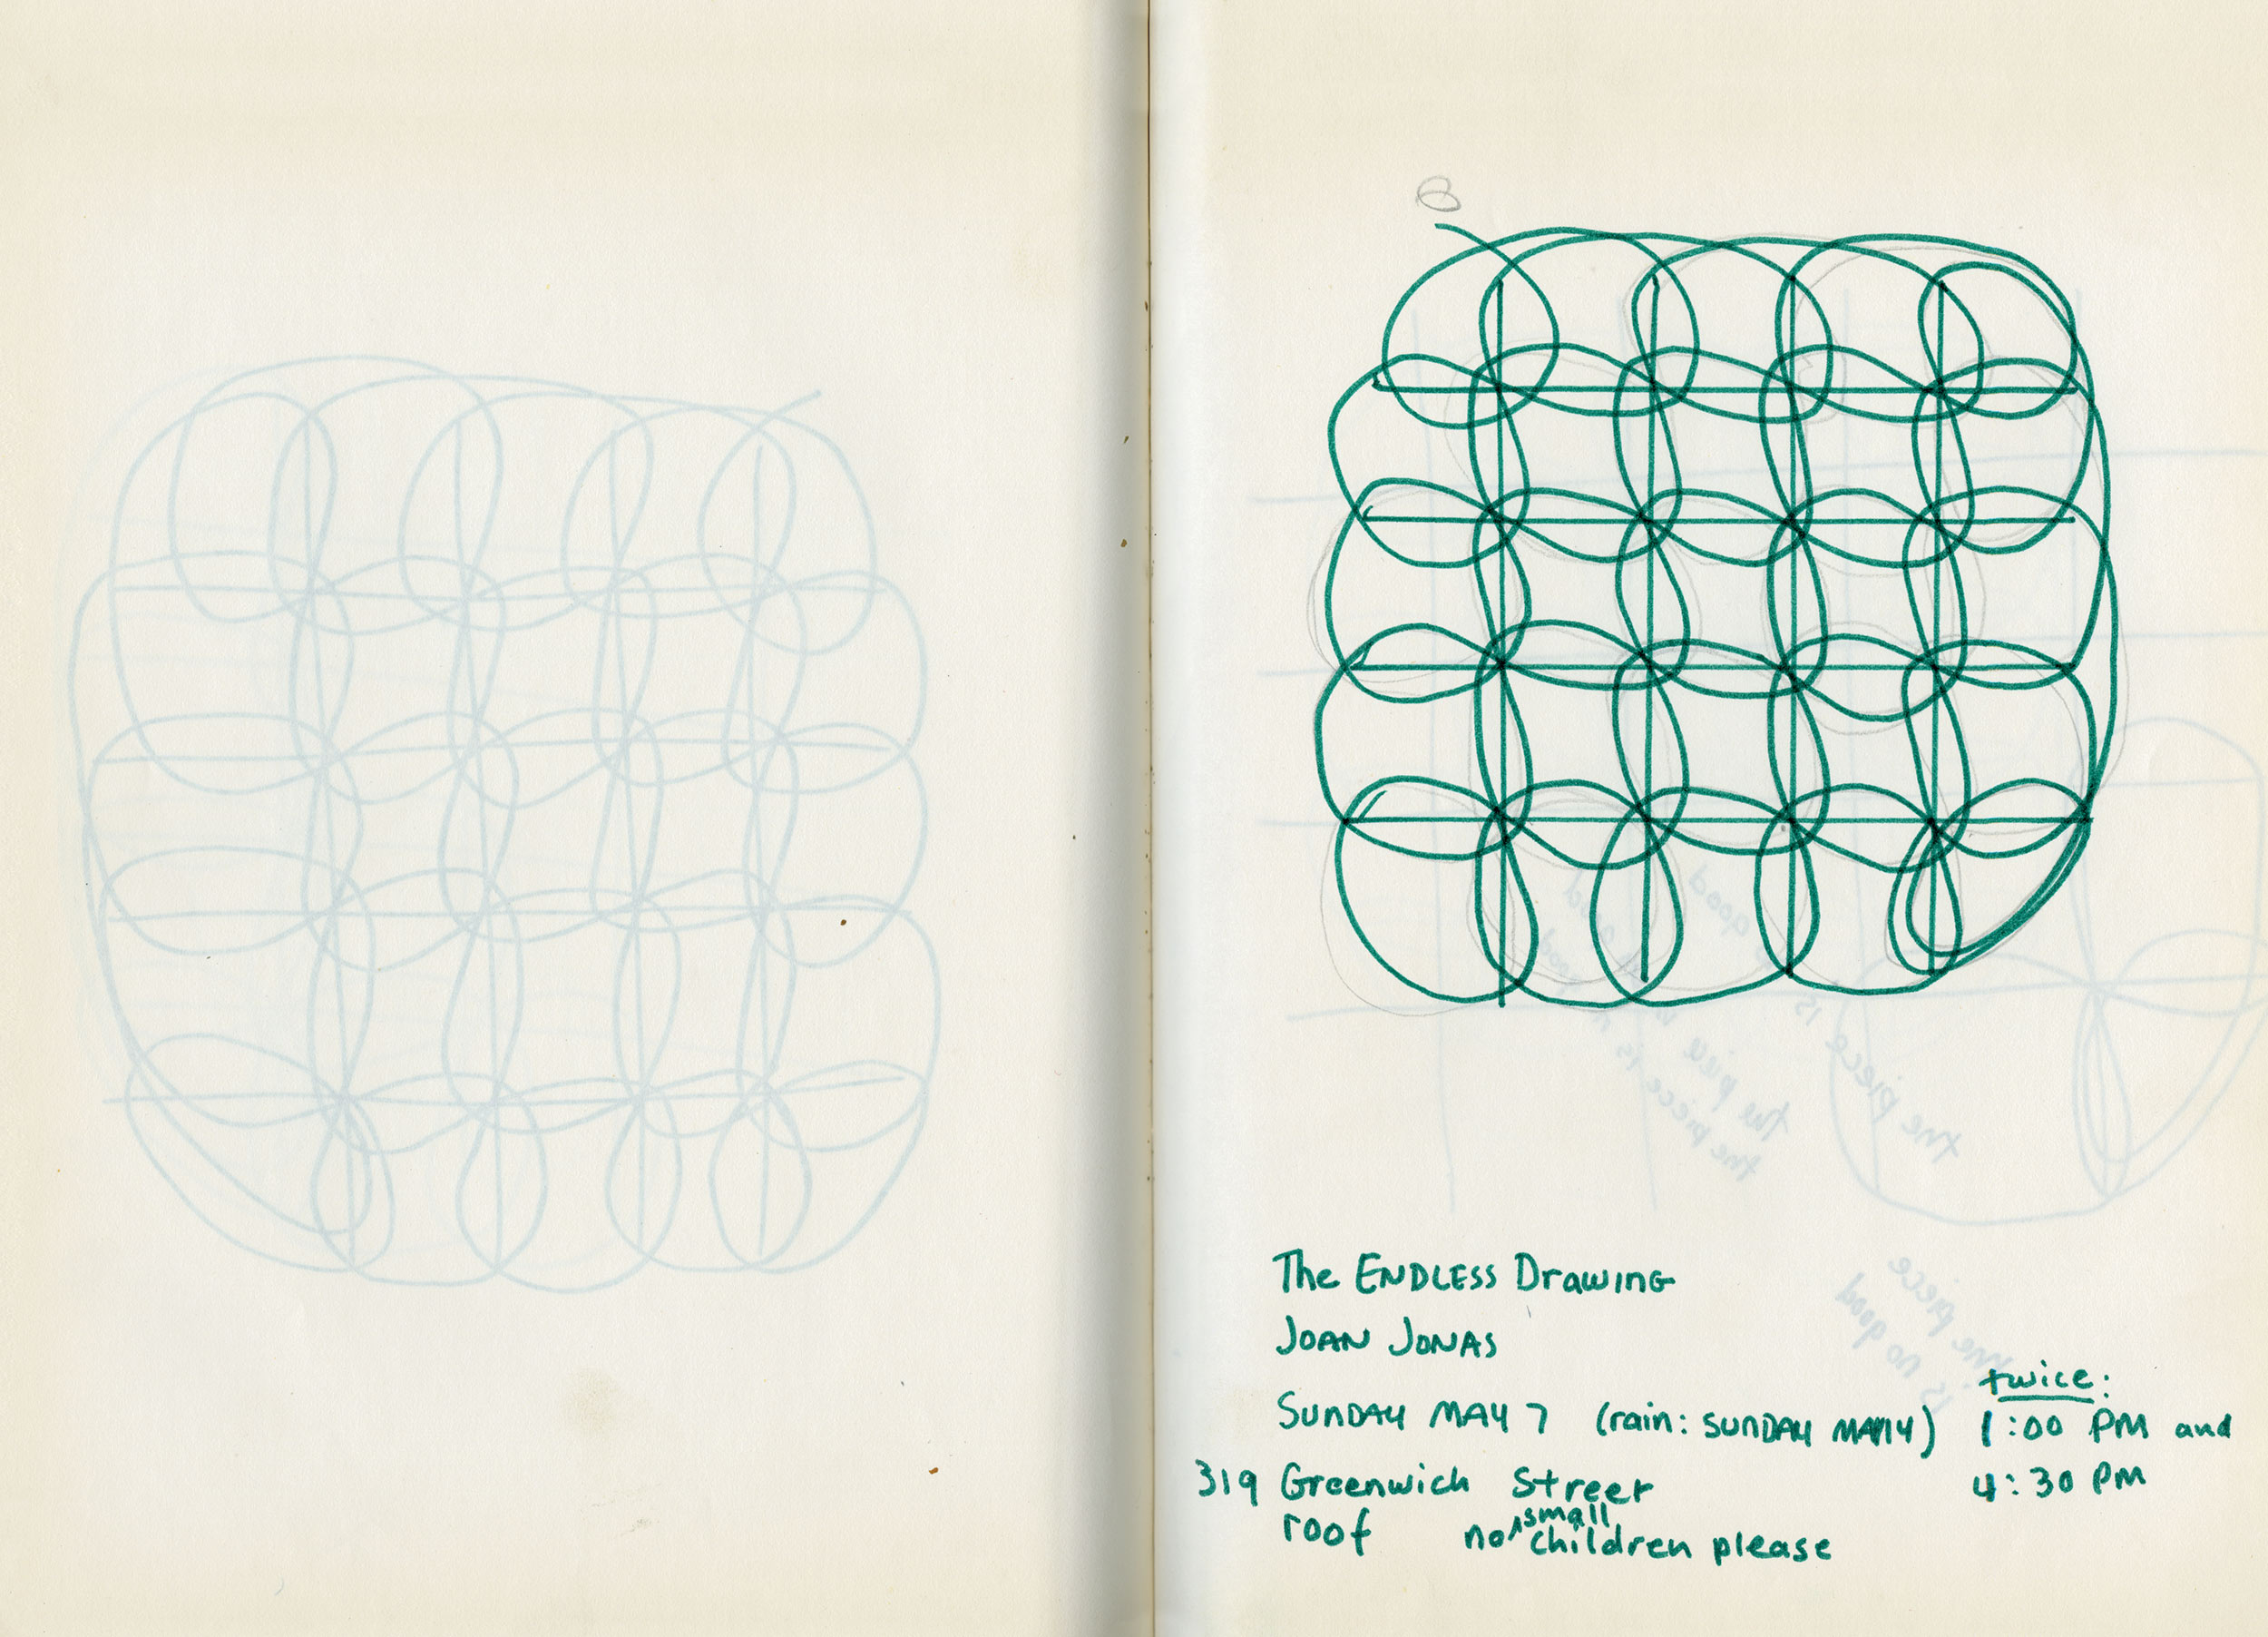 the piece is no good
the piece is no good
The ENDLESS DrawinG
JOAN JONAS
SUNDAY MAY 7 (rain: SUNDAY MAY 14)
twice:
1:00 PM and
4:30 PM
319 Greenwich Street
roof no small children please
the piece
is no good